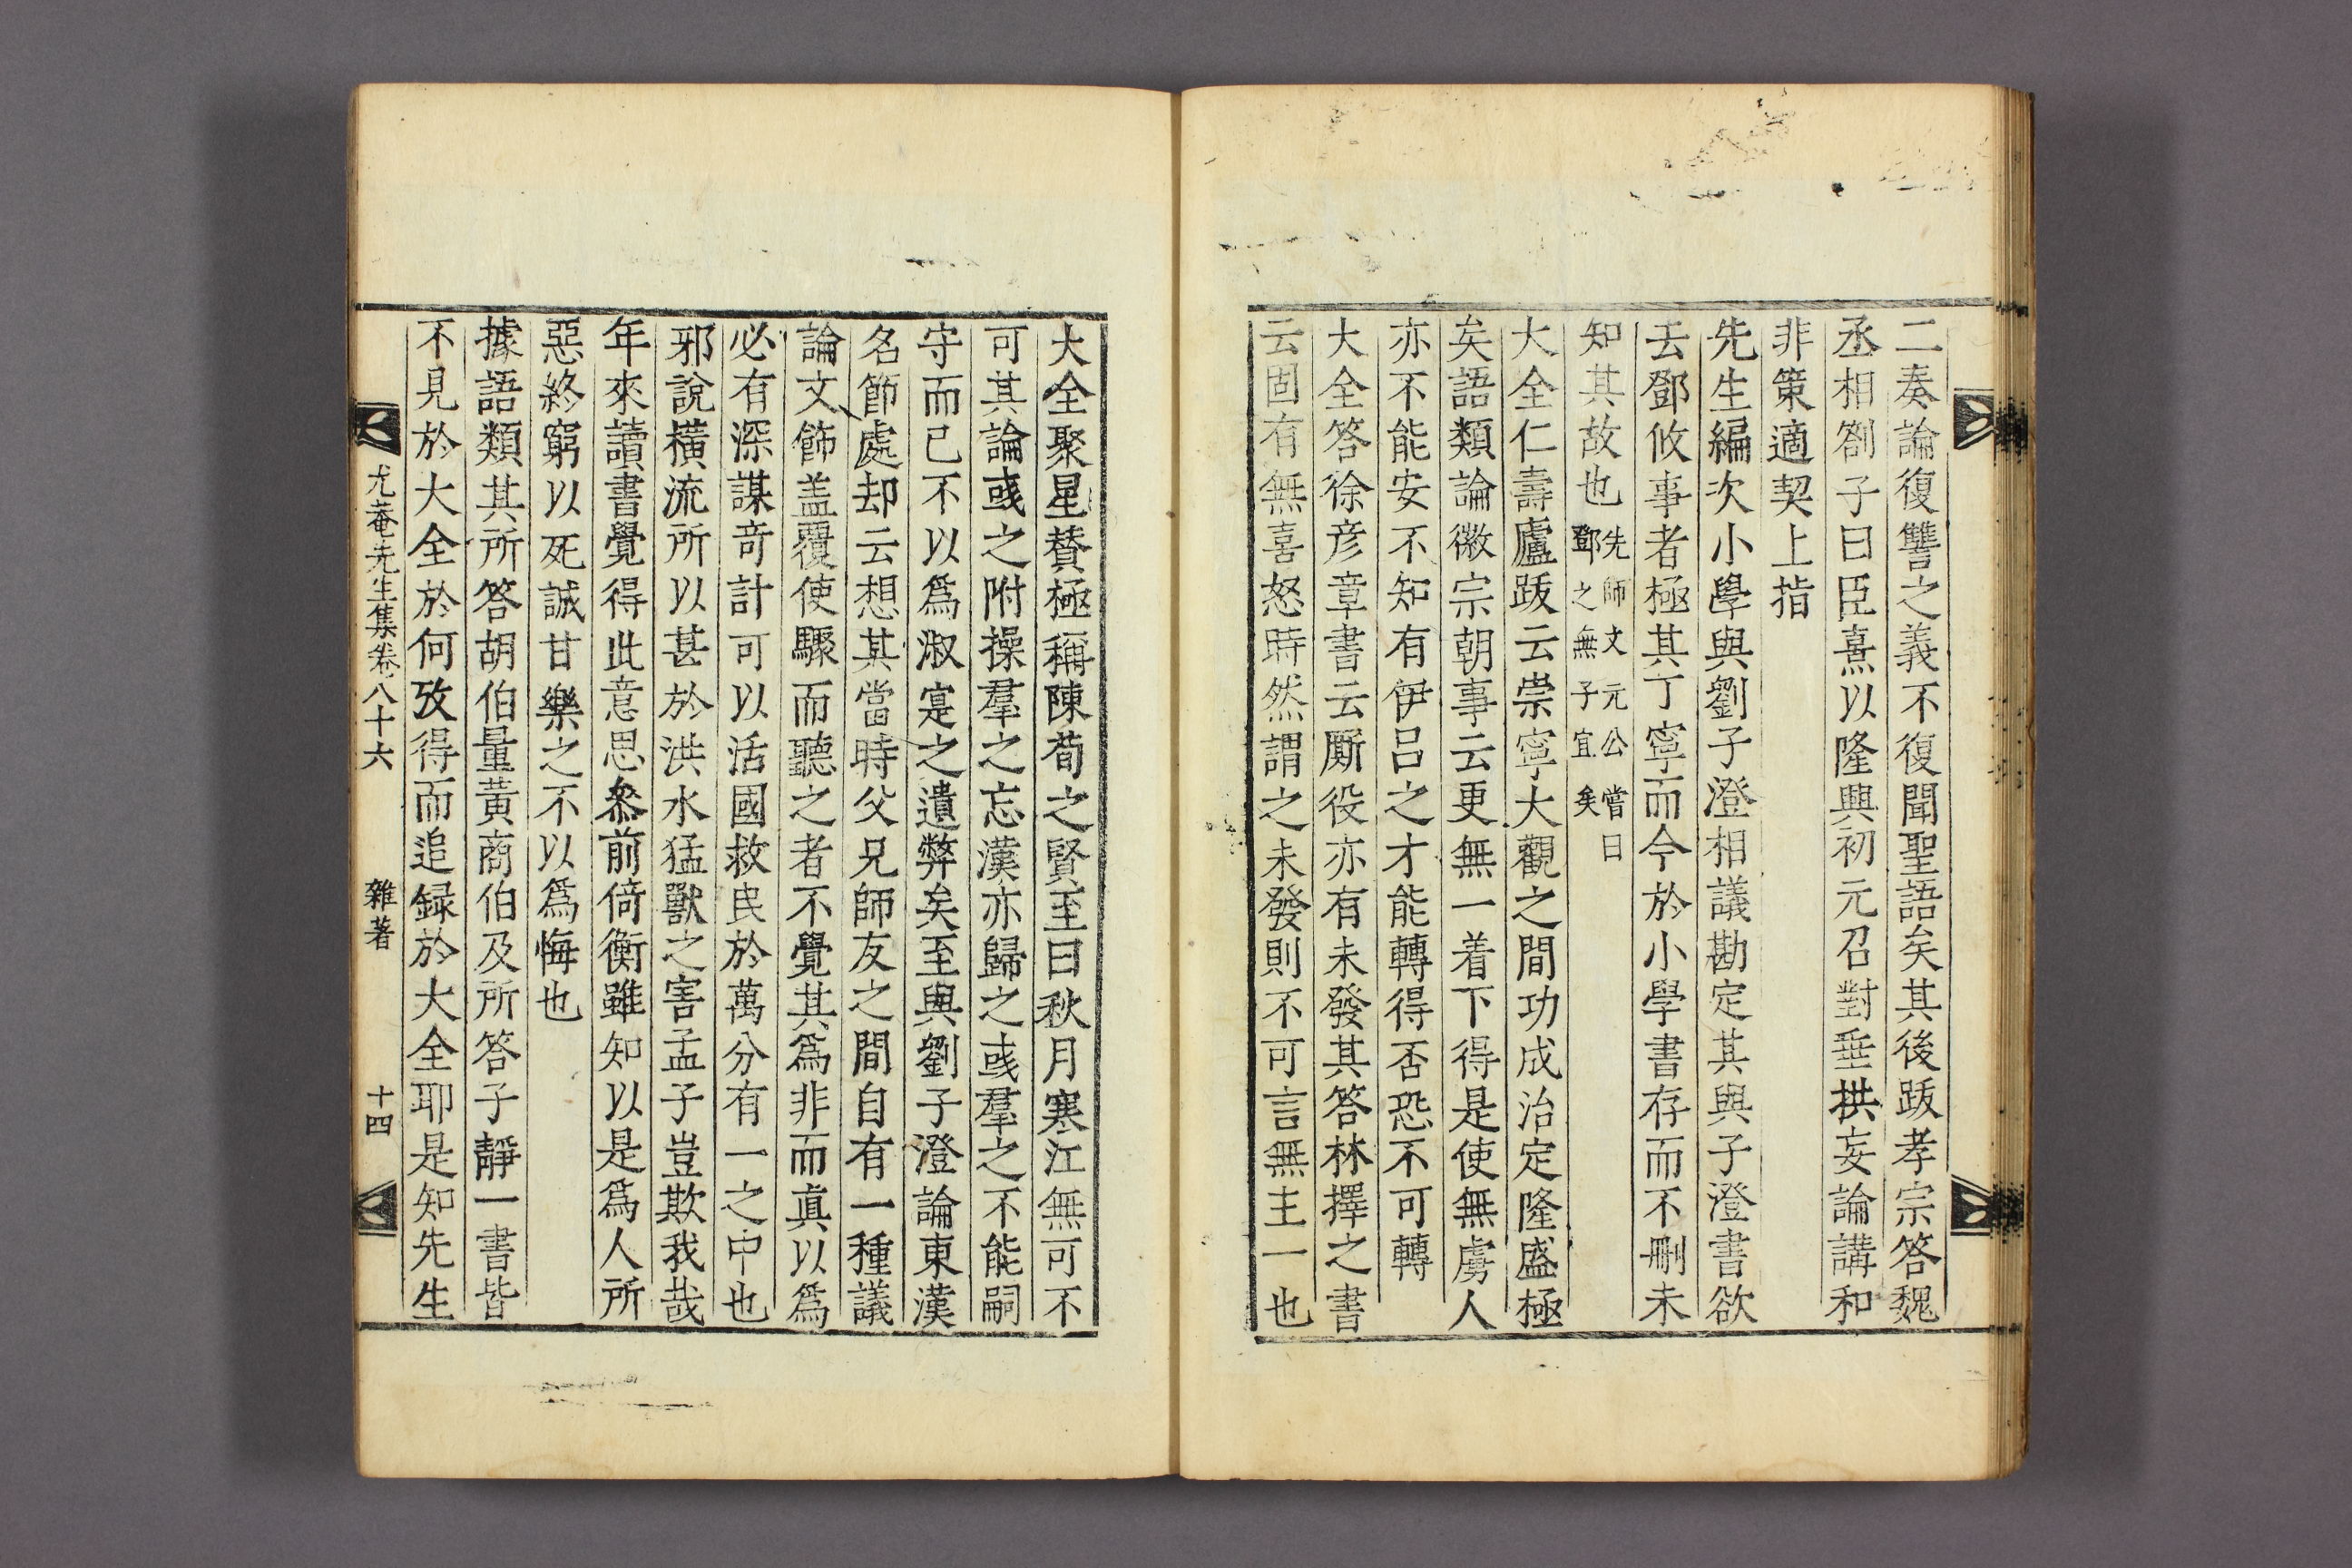 二奏論復讐之義不復聞聖語矣其後跋孝宗答魏
丞相劄子曰臣熹以隆興初元召對垂拱妄論講和
非策適契上指
先生編次小學與劉子澄相議勘定其與子澄書欲
去鄧攸事者極其丁寧而今於小學書存而不刪未
知其故也先師文元公嘗曰鄧之無子宜矣
大全仁壽廬跋云崇寧大觀之間功成治定隆盛極
矣語類論徽宗朝事云更無一着下得是使無虜人
亦不能安不知有伊呂之才能轉得否恐不可轉
大全答徐彦章書云厮役亦有未發其答林擇之書
云固有無喜怒時然謂之未發則不可言無主一也
大全聚星賛極稱陳荀之賢至曰秋月寒江無可不
可其論彧之附操羣之忘漢亦歸之彧羣之不能嗣
守而已不以爲淑寔之遺弊矣至與劉子澄論東漢
名節處却云想其當時父兄師友之間自有一種議
論文飾盖覆使驟而聽之者不覺其爲非而眞以爲
必有深謀奇計可以活國救民於萬分有一之中也
邪說橫流所以甚於洪水猛獸之害孟子豈欺我哉
年來讀書覺得此意思叅前倚衡雖知以是爲人所
惡終窮以死誠甘樂之不以爲悔也
據語類其所答胡伯量黃商伯及所答子靜一書皆
不見於大全於何攷得而追録於大全耶是知先生
尤菴先生集卷八十六 雜著 十四